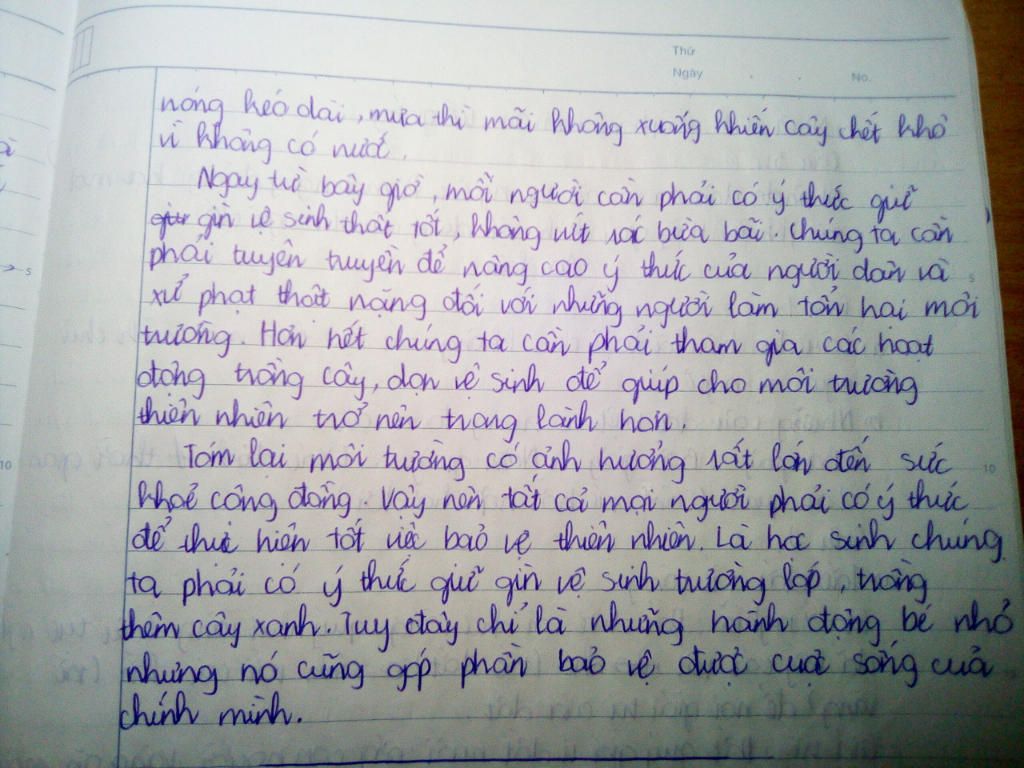 Thứ
Ngày . . No.
nóng kéo dài, mưa thì mãi không xuống khiến cây chết khô
vì không có nước.
Ngay từ bây giờ, mỗi người cần phải có ý thức giữ
gìn vệ sinh thật tốt, không vứt rác bừa bãi. Chúng ta cần
phải tuyên truyền để nâng cao ý thức của người dân và
xử phạt thật nặng đối với những người làm tổn hại môi
trường. Hơn hết chúng ta cần phải tham gia các hoạt
động trồng cây, dọn vệ sinh để giúp cho môi trường
thiên nhiên trở nên trong lành hơn.
Tóm lại môi trường có ảnh hưởng rất lớn đến sức
khoẻ cộng đồng. Vậy nên tất cả mọi người phải có ý thức
để thực hiện tốt việc bảo vệ thiên nhiên. Là học sinh chúng
ta phải có ý thức giữ gìn vệ sinh trường lớp, trồng
thêm cây xanh. Tuy đây chỉ là những hành động bé nhỏ
nhưng nó cũng góp phần bảo vệ được cuộc sống của
chính mình.